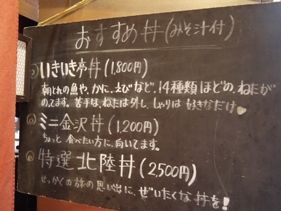 おすすめ丼(みそ汁付)
いきいき亭丼(1,800円)
朝とれの魚や、かに、えびなど、14種類ほどの、ねたが
のってます。苦手な、ねたは外し、しゃりは 好きなだけ
ミニ金沢丼(1,200円)
ちょっと 食べたい方に、向いてます。
特選 北陸丼(2,500円)
せっかくの旅の思い出に、ぜいたくな 丼を!